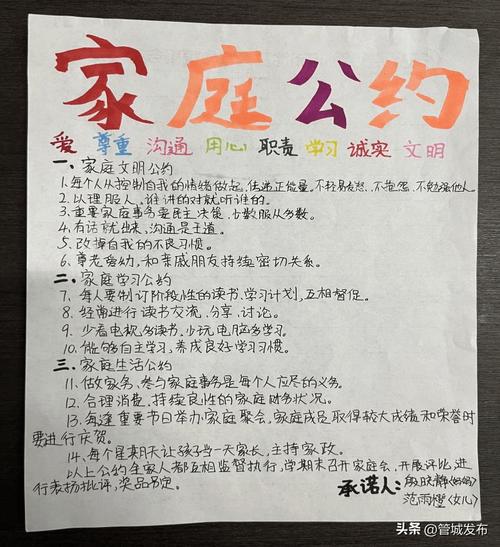 家庭公约
爱 尊重 沟通 用心 职责 学习 诚实 文明
一、家庭文明公约
1.每个人从控制自我的情绪做起,传递正能量。不轻易发怒、不抱怨、不勉强他人。
2.以理服人,谁讲的对就听谁的。
3.重要家庭事务要民主决策,少数服从多数。
4.有话就出来,沟通是王道。
5.改掉自我的不良习惯。
6.尊老爱幼,和亲戚朋友持续密切关系。
二、家庭学习公约
7.每人要制订阶段性的读书、学习计划,互相督促。
8.经常进行读书交流、分享、讨论。
9.少看电视多读书、少玩电脑多学习。
10.能够自主学习,养成良好学习习惯。
三、家庭生活公约
11.做家务,参与家庭事务是每个人应尽的义务。
12.合理消费,持续良性的家庭财务状况。
13.每逢重要节日举办家庭聚会,家庭成员取得较大成绩和荣誉时
要进行庆贺。
14.每个星期天让孩子当一天家长,主持家政。
以上公约全家人都互相监督执行,学期末召开家庭会,开展评比,进
行表扬批评,奖品另定。
承诺人:晓静(妈妈)
范雨橙(女儿)
头条@管城发布